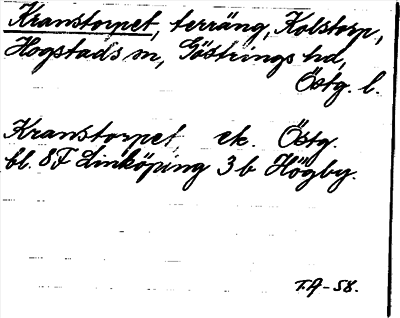 Kranstorpet, terräng, Kolstorp,
Hogstads sn, Göstrings hd,
Östg. l.
Kranstorpet, ek. Östg.
bl. 8F Linköping 3b Högby.
T.A-58.